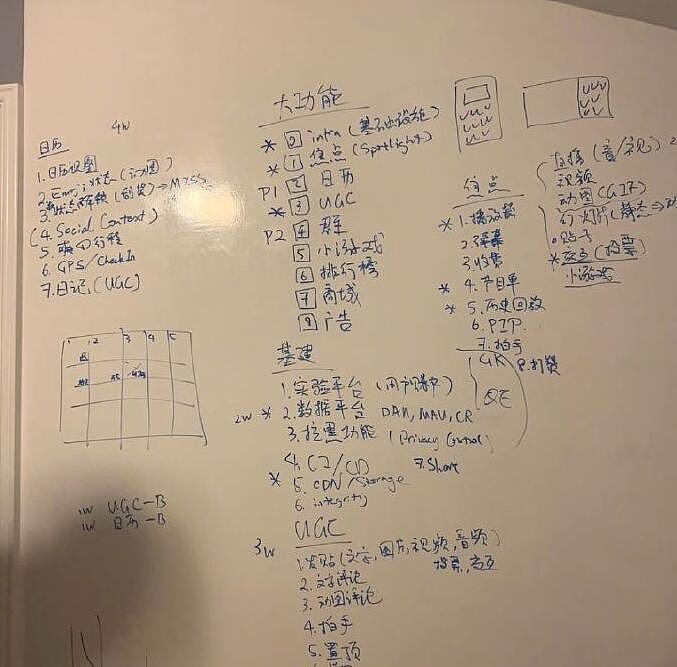 4w
日历
1. 日历视图
2. Emoji 状态 (心图)
3. 状态解锁
(4. Social Context)
5. 行程
6. GPS/CheckIn
7. 日记 (UGC)
1 2 3 4 5
1w UGC-B
1w 日历-B
大功能
* 0 infra (基础设施)
* 1 焦点 (Spotlight)
P1 2 日历
* 3 UGC
P2 4 群
5 小游戏
6 排行榜
7 商城
8 广告
基建
1. 实验平台
2w * 2. 数据平台 DAU, MAU, CR
3. 功能 (Privacy Control)
4. CI/CD
7. Share
* 5. CDN/Storage
6. integrity
3w UGC
1. 发贴 (文字, 图片, 视频, 音频)
投票
2. 文字评论
3. 动图评论
4. 拍手
5. 置顶
焦点
* 1. 播放器
2. 弹幕
3. 收费
* 4. 节目单
* 5. 历史回放
6. PIP
7. 拍手
8. 打赏
GK
QE
直播 (音/视)
视频
动图 (GIF)
幻灯片
贴子
* (投票)
小游戏